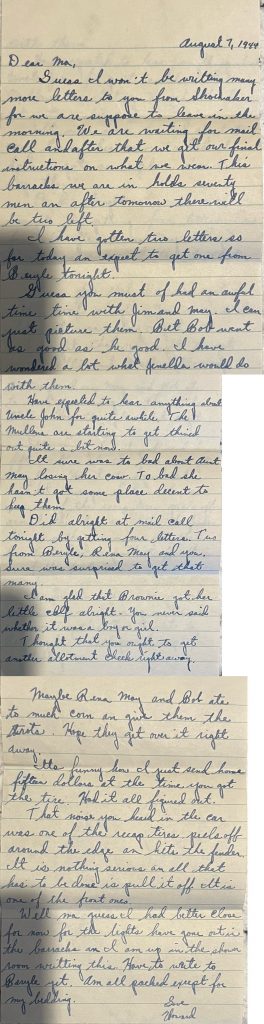 August 7, 1944
Dear Ma,
Guess I won't be writting many
more letters to you from Shoemaker
for we are suppose to leave in the
morning. We are waiting for mail
call and after that we get our final
instructions on what we wear. This
barracks we are in holds seventy
men an after tomorrow there will
be two left.
I have gotten two letters so
far today an expect to get one from
Beryle tonight.
Guess you must of had an awful
time time with Jim and May. I can
just picture them. Bet Bob went
as good as he good. I have
wondered a lot what Jenelda would do
with them.
Have expected to hear anything about
Uncle John for quite awhile. The
Mullens are starting to get thined
out quite a bit now.
It sure was to bad about Aunt
May losing her cow. To bad she
hasn't got some place decent to
keep them.
Did alright at mail call
tonight by getting four letters. Two
from Beryle, Rena May and you.
Sure was surprised to get that
many.
I am glad that Brownie got her
little calf alright. You never said
whether it was a boy or girl.
Thought that you ought to get
another allotment check right away.
Maybe Rena May and Bob ate
to much corn an give them the
trots. Hope they get over it right
away.
Its funny how I just send home
fifteen dollars at the time you got
the tire. Had it all figured out.
That noise you heard in the car
was one of the recap tires peels off
around the edge an hits the fender.
It is nothing serious an all that
has to be done is pull it off. It is
one of the front ones.
Well ma guess I had better close
for now for the lights have gone out in
the barracks an I am up in the shower
room writting this. Have to write to
Beryle yet. Am all packed except for
my bedding.
Love
Howard